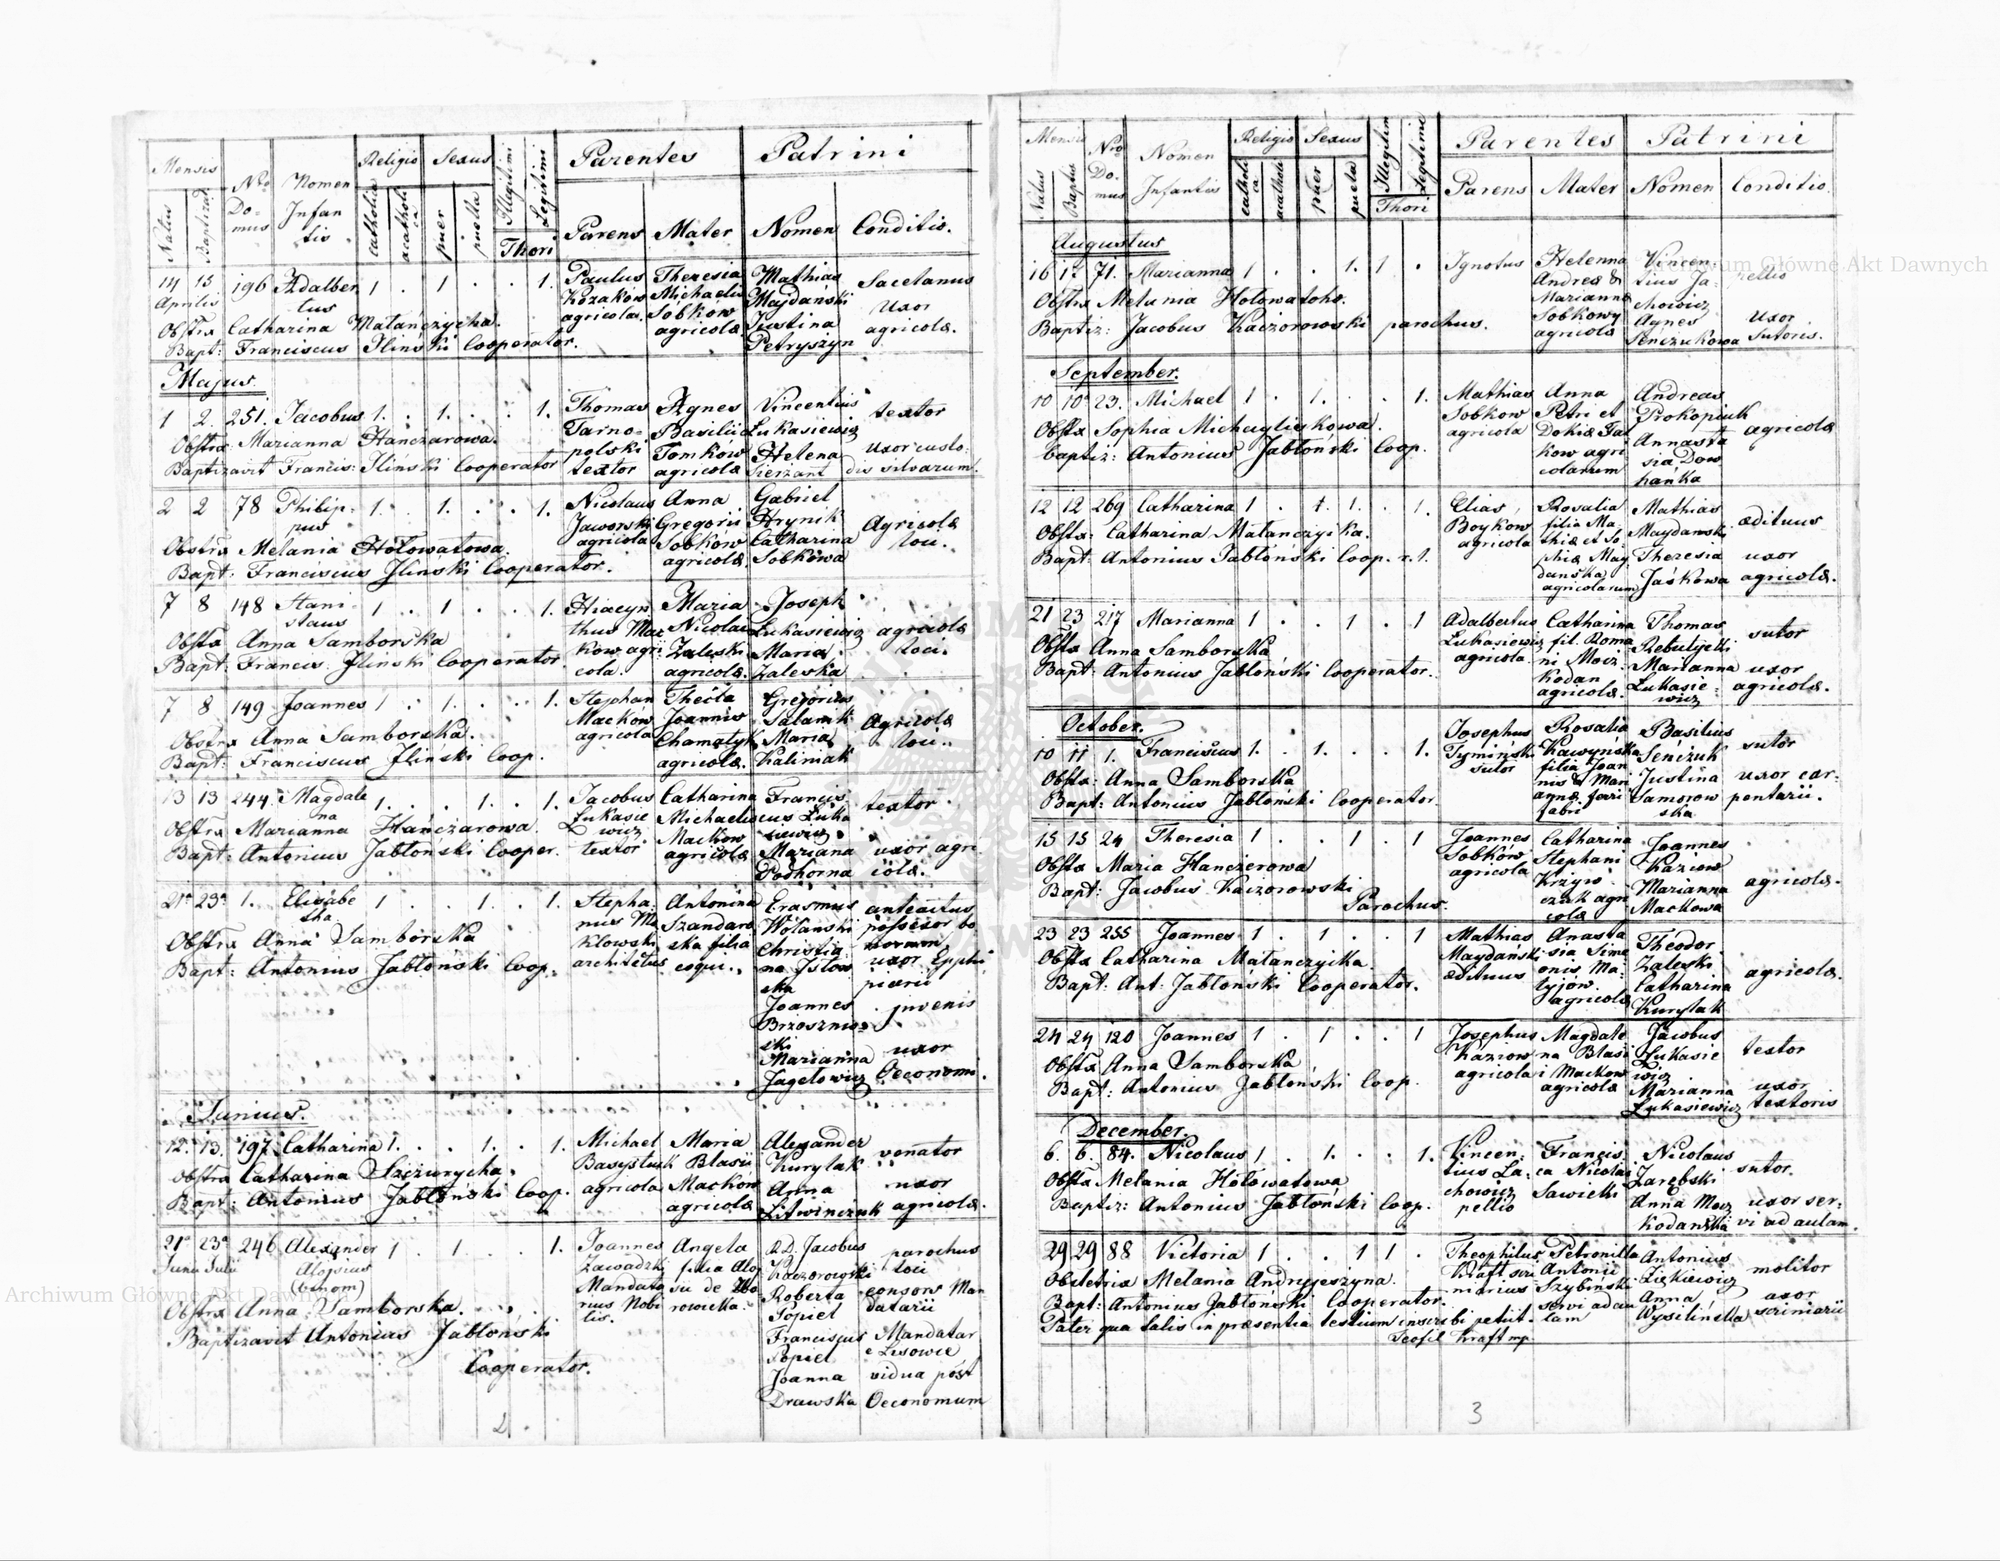 Mensis | Nro Domus | Nomen Infantis | Religio | Sexus | Illegitimi | Legitimi | Parentes | Patrini
Natus | Baptizat | catholica | acatholica | puer | puella | Thori | Parens | Mater | Nomen | Conditio.
14 15 Aprilis 196 Adalbertus 1 . 1 . . 1. Paulus Kozakow agricola. Theresia Michaelis Sobków agricolæ Mathias Majdański Justina Petryszyn Uxor agricolæ.
Obstra Catharina Matańczycha.
Bapt: Franciscus Iliński Cooperator.
Majus.
1 2. 251. Jacobus 1. . 1. . . 1. Thomas Tarnopolski textor Agnes Basilii Tomków agricolæ Vincentius Łukasiewicz Helena Sierzant textor uxor custodis silvarum.
Obstra Marianna Hanczarowa.
Baptizavit Francis: Iliński Cooperator
2 2 78 Philippus 1. . 1. . . 1. Nicolaus Jaworski agricola Anna Gregorii Sobków agricolæ. Gabriel Hrynik Catharina Sobkowa Agricolæ loci.
Obstra Melania Hołowatowa.
Bapt: Franciscus Iliński Cooperator.
7 8 148 Stanislaus 1 . 1 . . 1. Hiacynthus Mackow agricola. Maria Nicolai Zaleski agricolæ. Joseph Łukasiewicz Maria Zaleska agricolæ loci.
Obstra Anna Samborska
Bapt: Francis: Iliński Cooperator
7 8 149 Joannes 1 . 1. . . 1. Stephan Macków agricola Thecla Joannis Chamatyk agricolæ. Gregorius Salamk Maria Kaliniak Agricolæ loci.
Obstra Anna Samborska.
Bapt: Franciscus Iliński Coop.
13 13 244. Magdalena 1. . . 1. . 1. Jacobus Łukasiewicz textor Catharina Michaelis Mackow agricolæ Franciscus Łukasiewicz Mariana Podhorna textor uxor agricolæ.
Obstra Marianna Hańczarowa.
Bapt: Antonius Jabłoński Cooper.
21a 23a 1. Elisabetha 1 . . 1. . 1. Stephanus Maklowski architectus Antonina Szandarowska filia equi. Erasmus Wolański Christiana Isłowska Joannes Brzosznioski Marianna Jagełowicz anteactus possesor bonorum uxor juvenis uxor Oeconomi.
Obstra Anna Samborska
Bapt: Antonius Jabłoński Coop.
Junius.
12. 13. 197. Catharina 1. . . 1. . 1. Michael Basystuk agricola Maria Blasii Macków agricolæ Alexander Kurylak Anna Litwinczuk venator uxor agricolæ.
Obstra Catharina Szczurycha.
Bapt: Antonius Jabłoński Coop.
21a Juni 23a Julii 246 Alexander Aloysius (binom) 1 . 1 . . 1. Joannes Zawadzki Mandatarius Nobilis. Angela filia R.D. Jacobus Kaczorowski Roberta Popiel Franciscus Popiel Joanna Drawska parochus loci consors Mandatarii Mandatar e Lisowie vidua post Oeconomum
Obstra Anna Samborska.
Baptizavit Antonius Jabłoński
Cooperator.
2.
Mensis | Nro Domus | Nomen Infantis | Religio | Sexus | Illegitimi | Legitimi | Parentes | Patrini
Natus | Baptus | catholica | acatholi | puer | puella | Thori | Parens | Mater | Nomen | Conditio.
Augustus
16 17 71. Marianna 1 . . 1. 1 . Ignotus Helenna Andreæ & Mariannæ Sobkowy agricolæ Vincentius Jachowicz Agnes Senczukowa pellio uxor Sutoris.
Obstra Melania Hołowatoha.
Baptiz: Jacobus Kaczorowski parochus.
September.
10 10 23. Michael 1 . 1. . . 1. Mathias Sobkow agricola Anna Petri et Dokiæ Fatkow agricolarum Andreas Prokopiuk Annastasia Dowhanka agricolæ
Obsta Sophia Michayliszkowa.
baptiz: Antonius Jabłoński Coop.
12 12 269 Catharina 1 . 1. . 1. Elias Boykow agricola Rosalia filia Mathiæ et Sophiæ Magdanska agricolarum Mathias Magdanski Theresia Jaśkowa ædituus uxor agricolæ.
Obsta: Catharina Matanczycka.
Bapt: Antonius Jabłoński Coop. r. l.
21 23 217 Marianna 1 . . 1 . 1 Adalbertus Łukasiewicz agricola Catharina fil. Romani Moczkodan agricolæ. Thomas Marianna Łukasiewicz sutor uxor agricolæ.
Obsta Anna Samborska
Bapt: Antonius Jabłoński Cooperator.
October.
10 11 1. Franciscus 1. . 1. . . 1. Josephus Tyminski sutor Rosalia Kawynska filia Joannis & Mariannæ fori fabri Basilius Senczuk Justina Samorowska sutor uxor carpentarii.
Obsta: Anna Samborska
Bapt: Antonius Jabłoński Cooperator
15 15 24 Theresia 1 . . 1 . 1 Joannes Sobków agricola Catharina Stephani agricolæ Joannes Kaziow Marianna Mackowa agricolæ.
Obsta Maria Hanczerowa
Bapt: Jacobus Kaczorowski
Parochus.
23 23 255 Joannes 1 . 1 . . 1 Mathias Magdański ædituus Anastasia Simeonis agricolæ Theodor Zaleski Catharina Kurylak agricolæ.
Obsta Catharina Matanczycka
Bapt: Ant: Jabłoński Cooperator.
24 24 120 Joannes 1 . 1 . . 1 Josephus Kaziow agricola Magdalena Blasii Mackow agricolæ Jacobus Łukasiewicz Marianna Łukasiewicz textor uxor textoris
Obsta Anna Samborska
Bapt: Antonius Jabłoński Coop.
December.
6. 6. 84. Nicolaus 1 . 1. . . 1. Vincentius Lachowicz pellio Francisca Nicolai Sawicki Nicolaus Zarębski Anna Moczkodanska sutor. uxor servi ad aulam.
Obsta Melania Hołowatowa
Baptiz: Antonius Jabłoński Coop.
29 29 88 Victoria 1 . . 1 1 . Theophilus Kraft scriniarius Petronilla Antonii Szybiński servi ad aulam Antonius Liskiewicz Anna Wysilińska molitor uxor scriniarii
Obstetrix Melania Andryjeszyna.
Bapt: Antonius Jabłoński Cooperator.
Pater qua talis in præsentia testium inscribi petiit.
Teofil Kraft mp
3
Archiwum Główne Akt Dawnych
Archiwum Główne Akt Dawnych